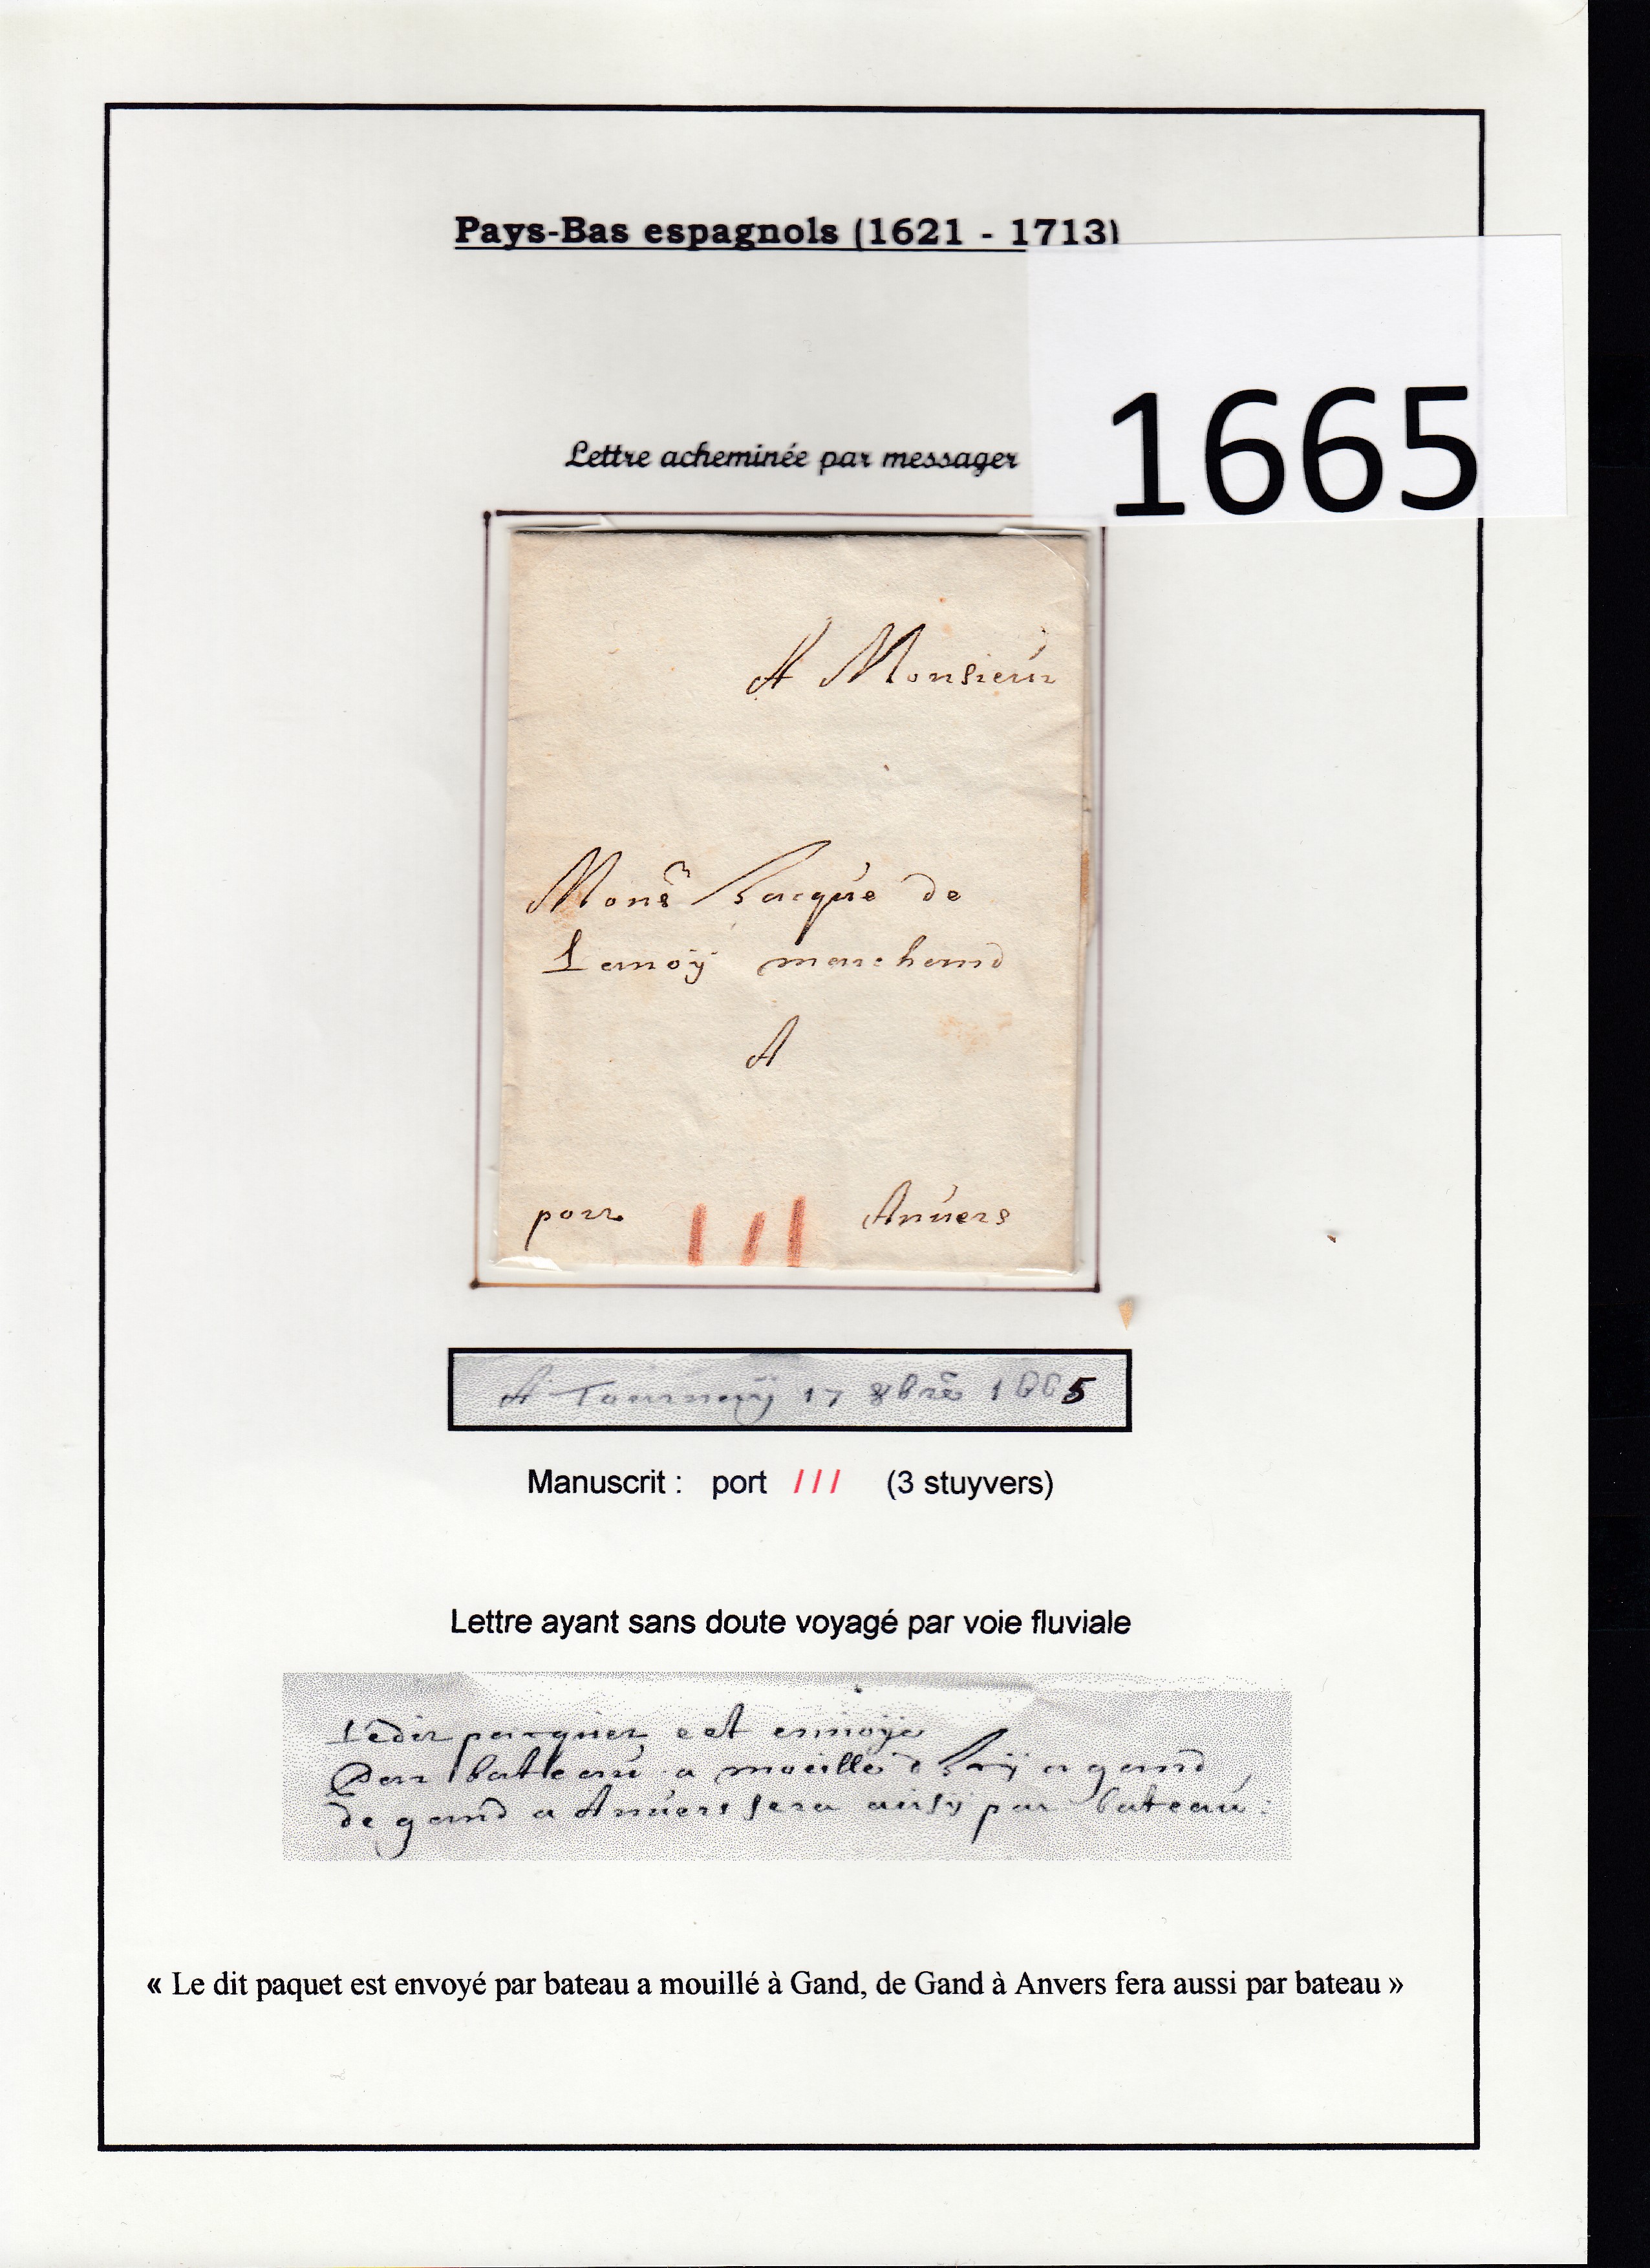 Pays-Bas espagnols (1621 - 1713)
1665
Lettre acheminée par messager
A Monsieur
Monsr Jacque de
Lanoÿ marchand
A
porr Anvers
A Tournaÿ 17 8bre 1665
Manuscrit : port / / / (3 stuyvers)
Lettre ayant sans doute voyagé par voie fluviale
Ledit pacquet est envoye
Par bateau a moeille a gand,
de gand a Anvers sera ausy par bateau:
« Le dit paquet est envoyé par bateau a mouillé à Gand, de Gand à Anvers fera aussi par bateau »